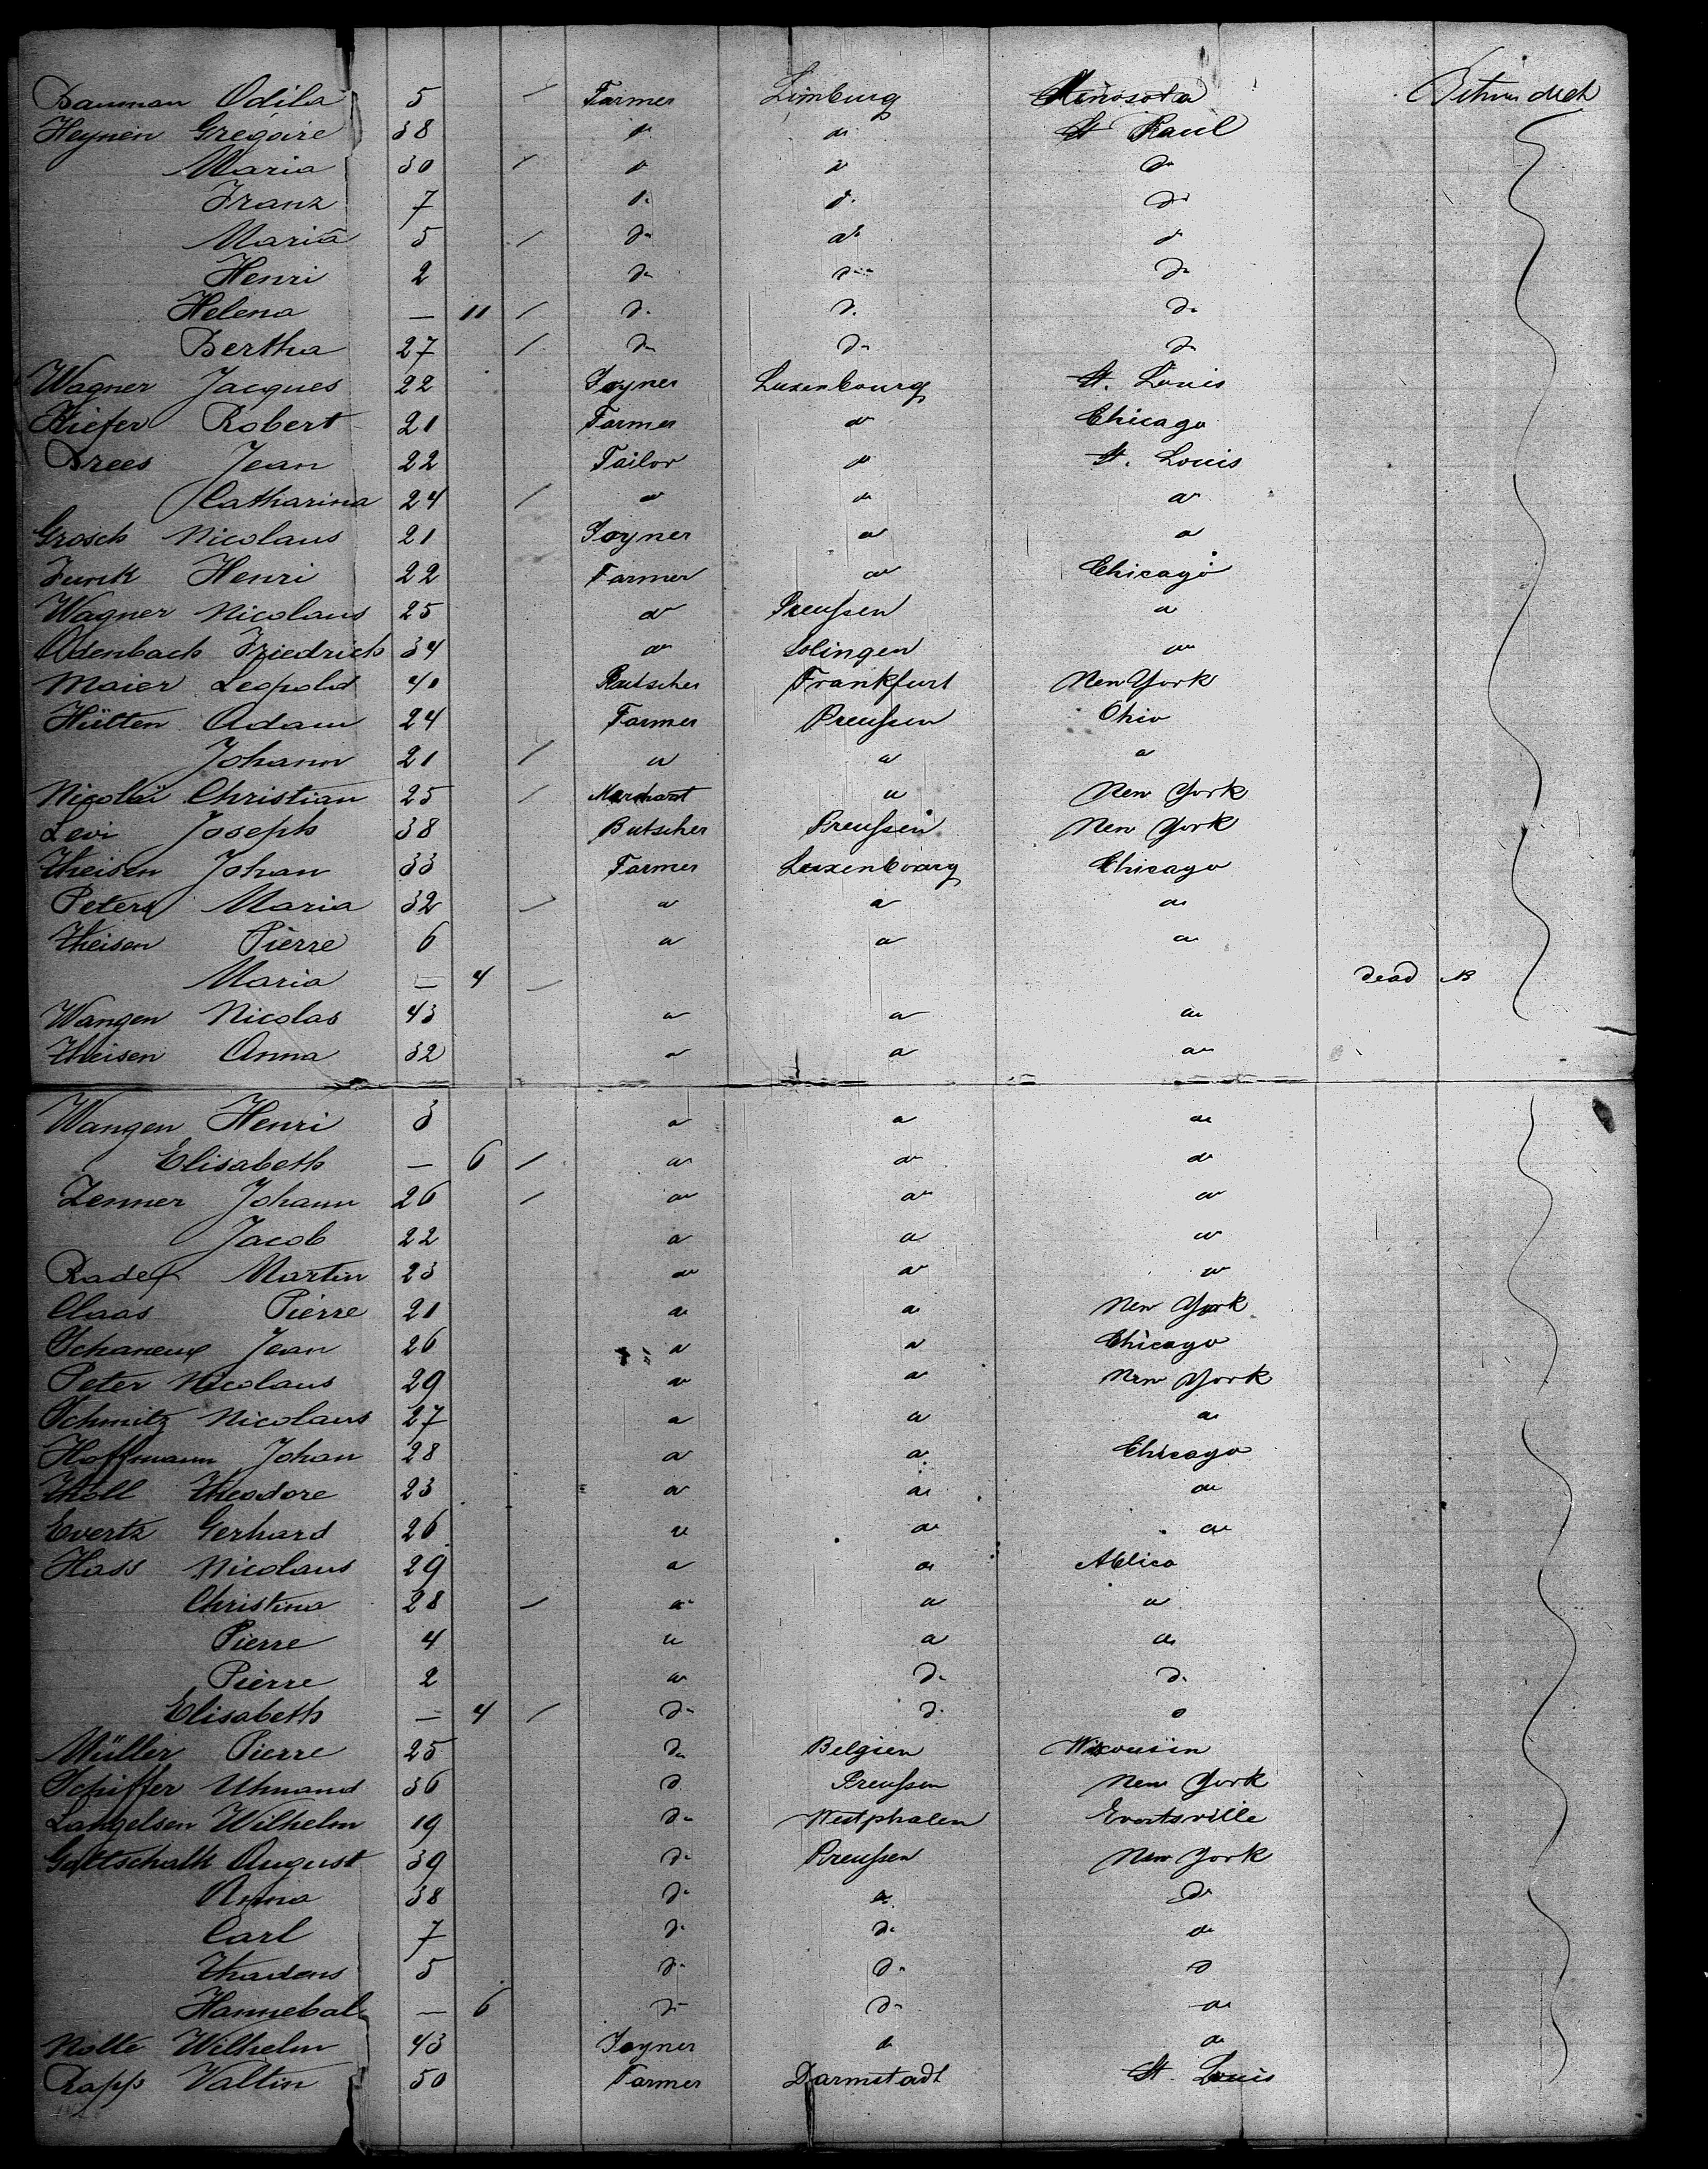 Bauman Odila 5 / Farmer Limburg Minosota Between deck
Heynen Gregoire 38 do do St Paul
Maria 30 / do do do
Franz 7 do do do
Maria 5 / do do do
Henri 2 do do do
Helena — 11 / do do do
Bertha 27 / do do do
Wagner Jacques 22 Joyner Luxenbourg St. Louis
Kiefer Robert 21 Farmer do Chicago
Drees Jean 22 Tailor do St. Louis
Catharina 24 / do do do
Grosch Nicolaus 21 Joyner do do
Funk Henri 22 Farmer do Chicago
Wagner Nicolaus 25 do Preussen do
Odenbach Friedrich 34 do Solingen do
Maier Leopold 40 Butscher Frankfurt New York
Hülten Adam 24 Farmer Preussen Ohio
Johann 21 / do do do
Nicolaï Christian 25 / Marchant do New York
Levi Joseph 38 Butscher Preussen New York
Theisen Johan 33 Farmer Luxenbourg Chicago
Peters Maria 32 / do do do
Theisen Pierre 6 do do do
Maria — 4 / dead
Wangen Nicolas 43 do do do
Theisen Anna 32 do do do
Wangen Henri 3 do do do
Elisabeth — 6 / do do do
Zenner Johann 26 / do do do
Jacob 22 do do do
Rader Martin 23 do do do
Claas Pierre 21 do do New York
Schaneux Jean 26 do do Chicago
Peter Nicolaus 29 do do New York
Schmitz Nicolaus 27 do do do
Hoffmann Johan 28 do do Chicago
Tholl Theodore 23 do do do
Evertz Gerhard 26 do do do
Hass Nicolaus 29 do do
Christina 28 / do do do
Pierre 4 do do do
Pierre 2 do do do
Elisabeth — 4 / do do do
Müller Pierre 25 do Belgien Wisconsin
Schiffer 36 do Preussen New York
Langelsen Wilhelm 19 do Westphalen Evertsville
Gottschalk August 39 do Preussen New York
Anna 38 do do do
Carl 7 do do do
Thadens 5 do do do
Hannebal — 6 do do do
Nolte Wilhelm 43 Joyner do do
Rapp Valtin 50 Farmer Darmstadt St. Louis